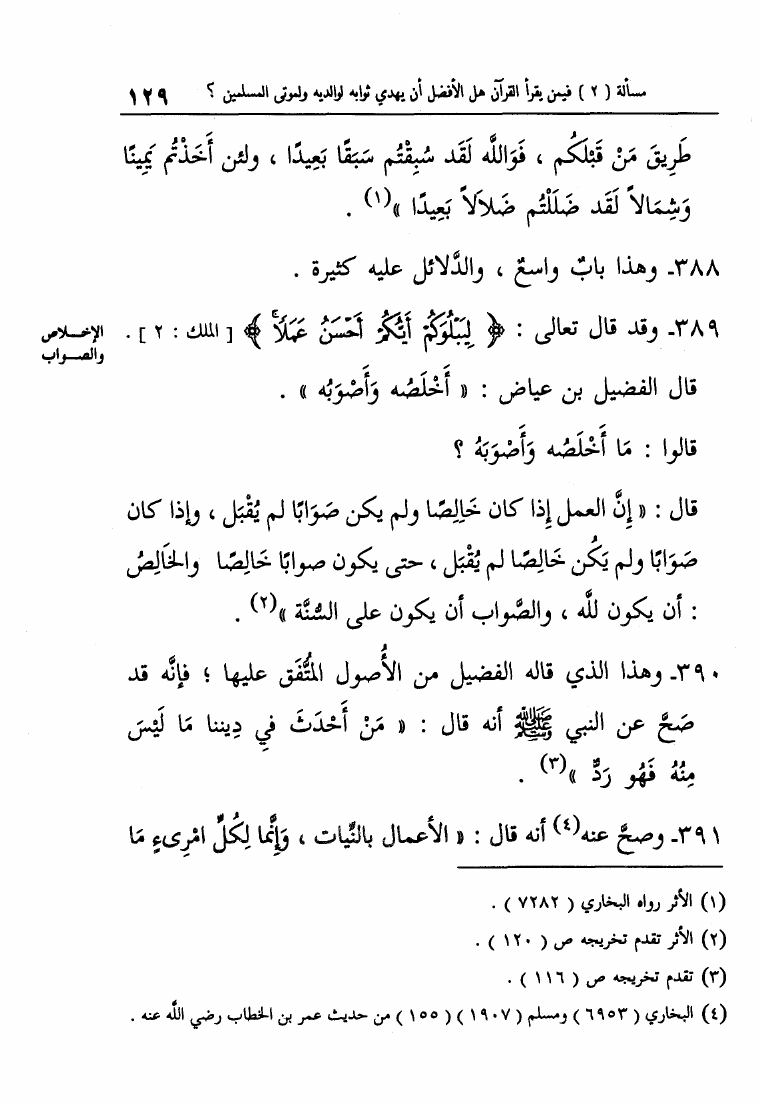 مسألة ( ٢ ) فيمن يقرأ القرآن هل الأفضل أن يهدي ثوابه لوالديه ولموتى المسلمين ؟ ١٢٩
طَرِيقَ مَنْ قَبْلَكُم ، فَوَاللَّه لَقَد سُبِقْتُم سَبَقًا بَعِيدًا ، ولئن أَخَذْتُم يَمِينًا
وَشِمَالاً لَقَد ضَلَلْتُم ضَلاَلاً بَعِيدًا »(١) .
٣٨٨ـ وهذا بابٌ واسعٌ ، والدَّلائل عليه كثيرة .
٣٨٩ـ وقد قال تعالى : ﴿ لِيَبْلُوَكُمْ أَيُّكُمْ أَحْسَنُ عَمَلاً ۚ ﴾ [ الملك : ٢ ] .
الإخـلاص
والصـواب
قال الفضيل بن عياض : « أَخْلَصُه وَأَصْوَبُه » .
قالوا : مَا أَخْلَصُه وَأَصْوَبَهُ ؟
قال : « إِنَّ العمل إِذا كان خَالِصًا ولم يكن صَوَابًا لم يُقْبَل ، وإذا كان
صَوَابًا ولم يَكُن خَالِصًا لم يُقْبَل ، حتى يكون صوابًا خَالِصًا والخَالِصُ
: أن يكون للَّه ، والصَّواب أن يكون على السُّنَّة »(٢) .
٣٩٠ـ وهذا الذي قاله الفضيل من الأُصول المُتَّفَق عليها ؛ فإنَّه قد
صَحَّ عن النبي ﷺ أنه قال : « مَنْ أَحْدَثَ فِي دِيننا مَا لَيْسَ
مِنْهُ فَهُو رَدٌّ »(٣) .
٣٩١ـ وصحَّ عنه(٤) أنه قال : « الأعمال بالنِّيات ، وَإِنَّما لِكُلِّ امْرِىءٍ مَا
(١) الأثر رواه البخاري ( ٧٢٨٢ ) .
(٢) الأثر تقدم تخريجه ص ( ١٢٠ ) .
(٣) تقدم تخريجه ص ( ١١٦ ) .
(٤) البخاري ( ٦٩٥٣ ) ومسلم ( ١٩٠٧ ) ( ١٥٥ ) من حديث عمر بن الخطاب رضي اللَّه عنه .